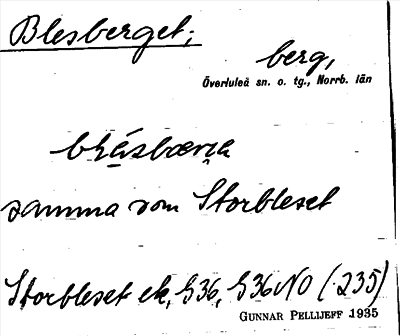 Blesberget;
berg,
Överluleå sn. o. tg., Norrb. län
samma som Storbleset
Storbleset ek, G36, G36 NO (235)
GUNNAR PELLIJEFF 1935